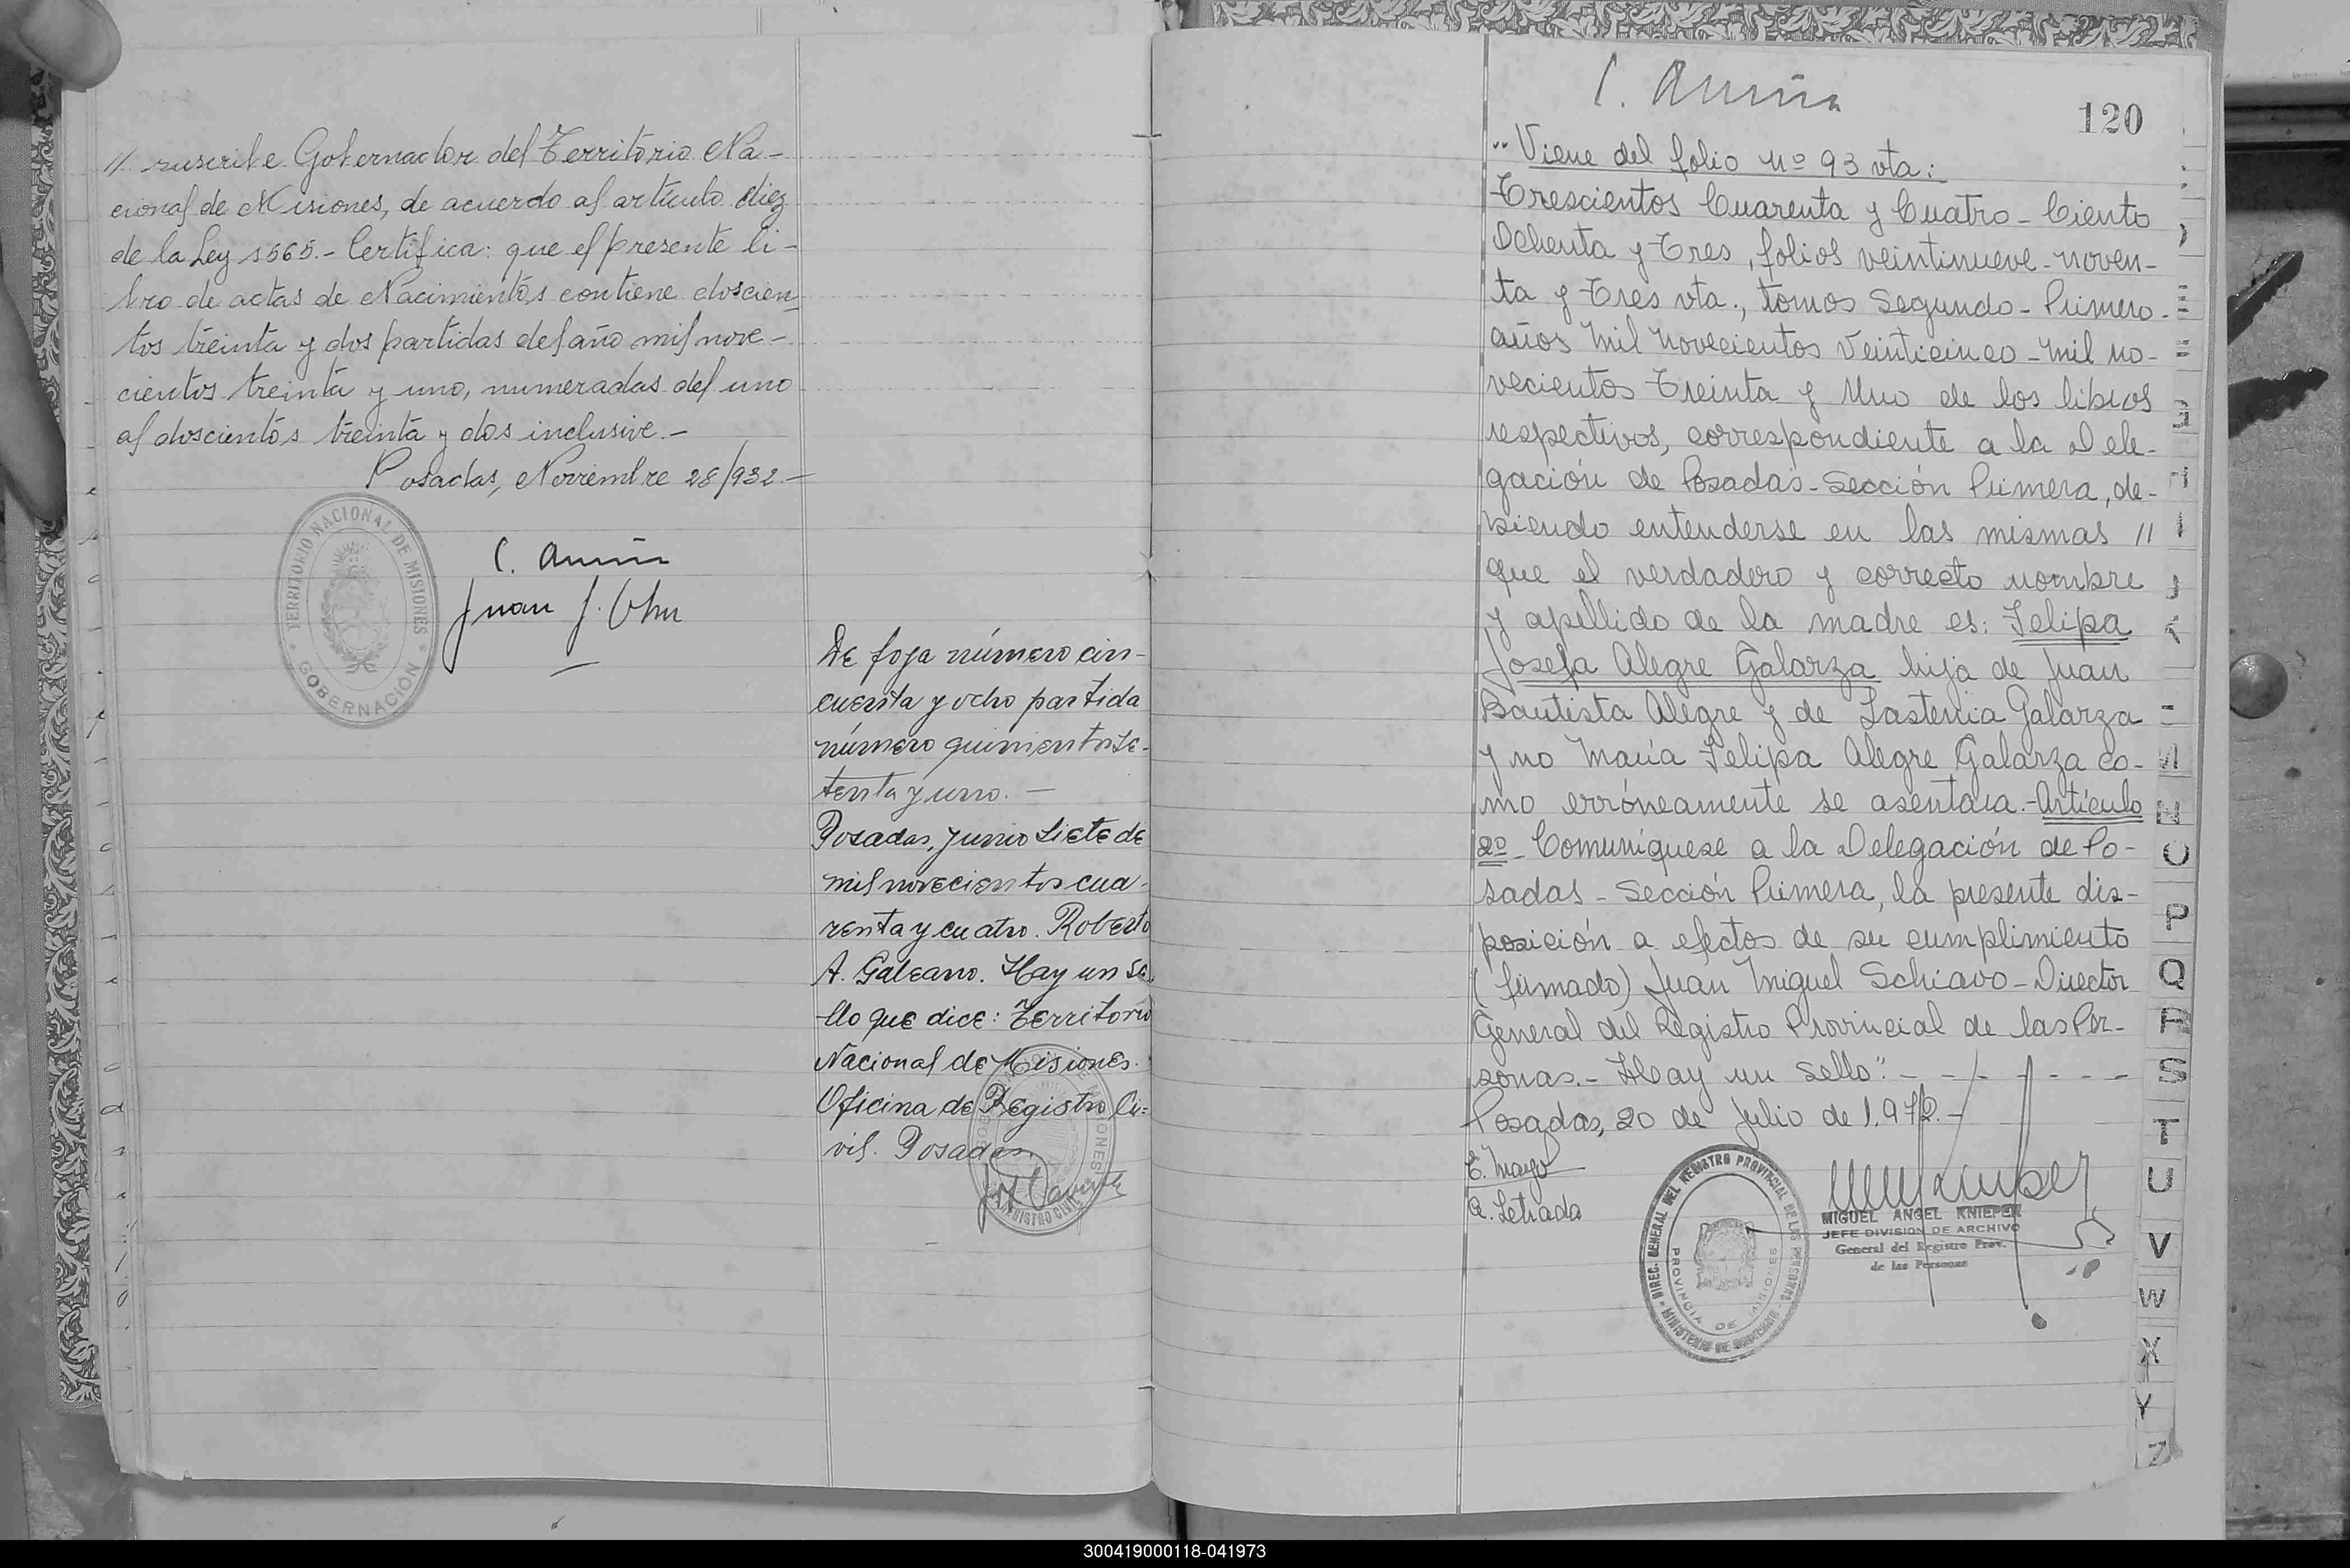 // suscribe Gobernador del Territorio Na-
cional de Misiones, de acuerdo al artículo diez
de la Ley 1565.- Certifica: que el presente li-
bro de actas de Nacimientos contiene doscien-
tos treinta y dos partidas del año mil nove-
cientos treinta y uno, numeradas del uno
al doscientos treinta y dos inclusive.-
Posadas, Noviembre 28/932.-
TERRITORIO NACIONAL DE MISIONES
GOBERNACIÓN
Juan J.
De foja número cin-
cuenta y ocho partida
número quinientos se-
tenta y uno. -
Posadas, junio siete de
mil novecientos cua-
renta y cuatro. Roberto
A. Galeano. Hay un se-
llo que dice: Territorio
Nacional de Misiones.
Oficina de Registro Ci-
vil. Posadas.
120
"Viene del folio Nº 93 vta:
Trescientos Cuarenta y Cuatro - Ciento
Ochenta y Tres, folios veintinueve - noven-
ta y Tres vta., tomos Segundo - Primero -
años Mil Novecientos Veinticinco - Mil No-
vecientos Treinta y Uno de los libros
respectivos, correspondiente a la Dele-
gación de Posadas - Sección Primera, de-
biendo entenderse en las mismas //
que el verdadero y correcto nombre
y apellido de la madre es: Felipa
Josefa Alegre Galarza hija de Juan
Bautista Alegre y de Lastenia Galarza
y no María Felipa Alegre Galarza co-
mo erróneamente se asentara.- Artículo
2º - Comuníquese a la Delegación de Po-
sadas - Sección Primera, la presente dis-
posición a efectos de su cumplimiento
(firmado) Juan Miguel Schiavo - Director
General del Registro Provincial de las Per-
sonas.- Hay un sello".- - - - - -
Posadas, 20 de Julio de 1.972.-
C. Mayo
A. Letrada
DIREC. GENERAL DEL REGISTRO PROVINCIAL DE LAS PERSONAS
PROVINCIA DE MISIONES
MIGUEL ANGEL KNIEPER
JEFE DIVISION DE ARCHIVO
General del Registro Prov.
de las Personas
O
P
Q
R
S
T
U
V
W
X
Y
Z
300419000118-041973